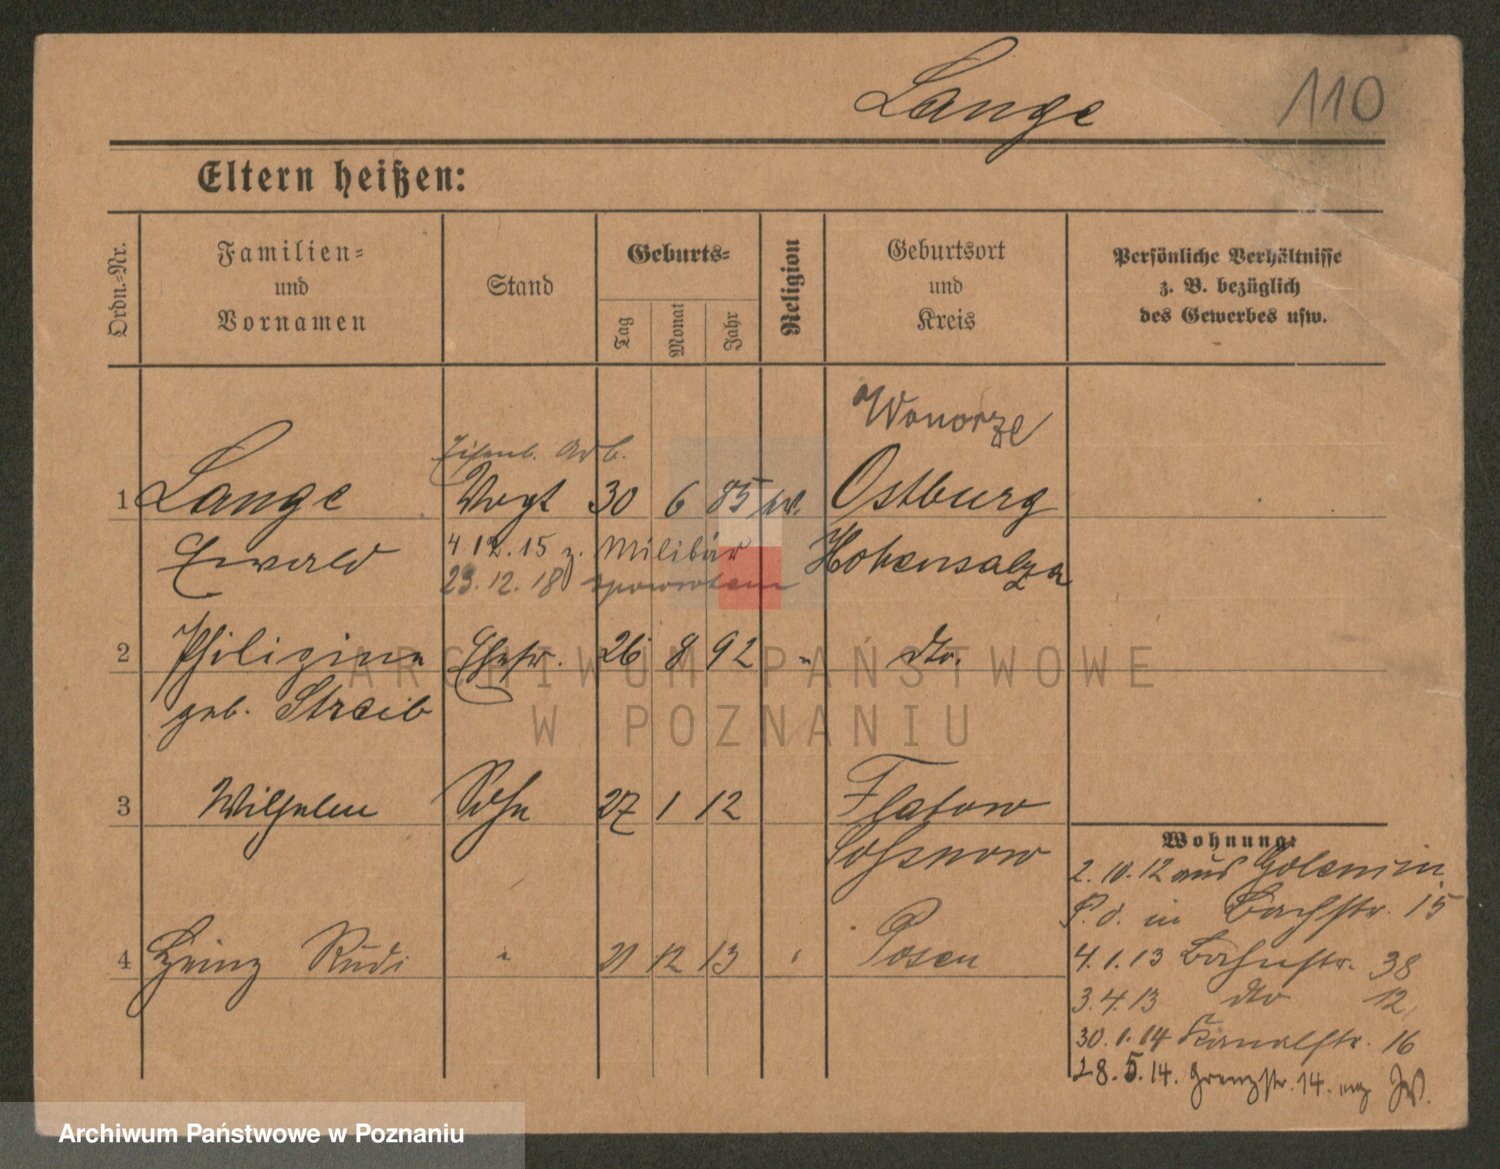 Lange
110
Eltern heißen:
Ordn.=Nr.
Familien=
und
Vornamen
Stand
Geburts=
Tag
Monat
Jahr
Religion
Geburtsort
und
Kreis
Persönliche Verhältnisse
z. B. bezüglich
des Gewerbes usw.
Wonorze
Eisenb. Arb.
1 Lange Vogt 30 6 85 Ostburg
Ewald 4 12. 15 z. Militär Hohensalza
23. 12. 18
2 Philizine Ehefr. 26 8 92 " dto.
geb. Streib
3 Wilhelm Sohn 27 1 12 Flatow
Wohnung:
2. 10. 12 aus
in Bachstr. 15
4 Heinz Rudi " 21 12 13 " Posen
4. 1. 13 Bahnstr. 38
3. 4. 13 dto 12
30. 1. 14 Kanalstr. 16
28. 5. 14. Grenzstr. 14.
ARCHIWUM PAŃSTWOWE
W POZNANIU
Archiwum Państwowe w Poznaniu